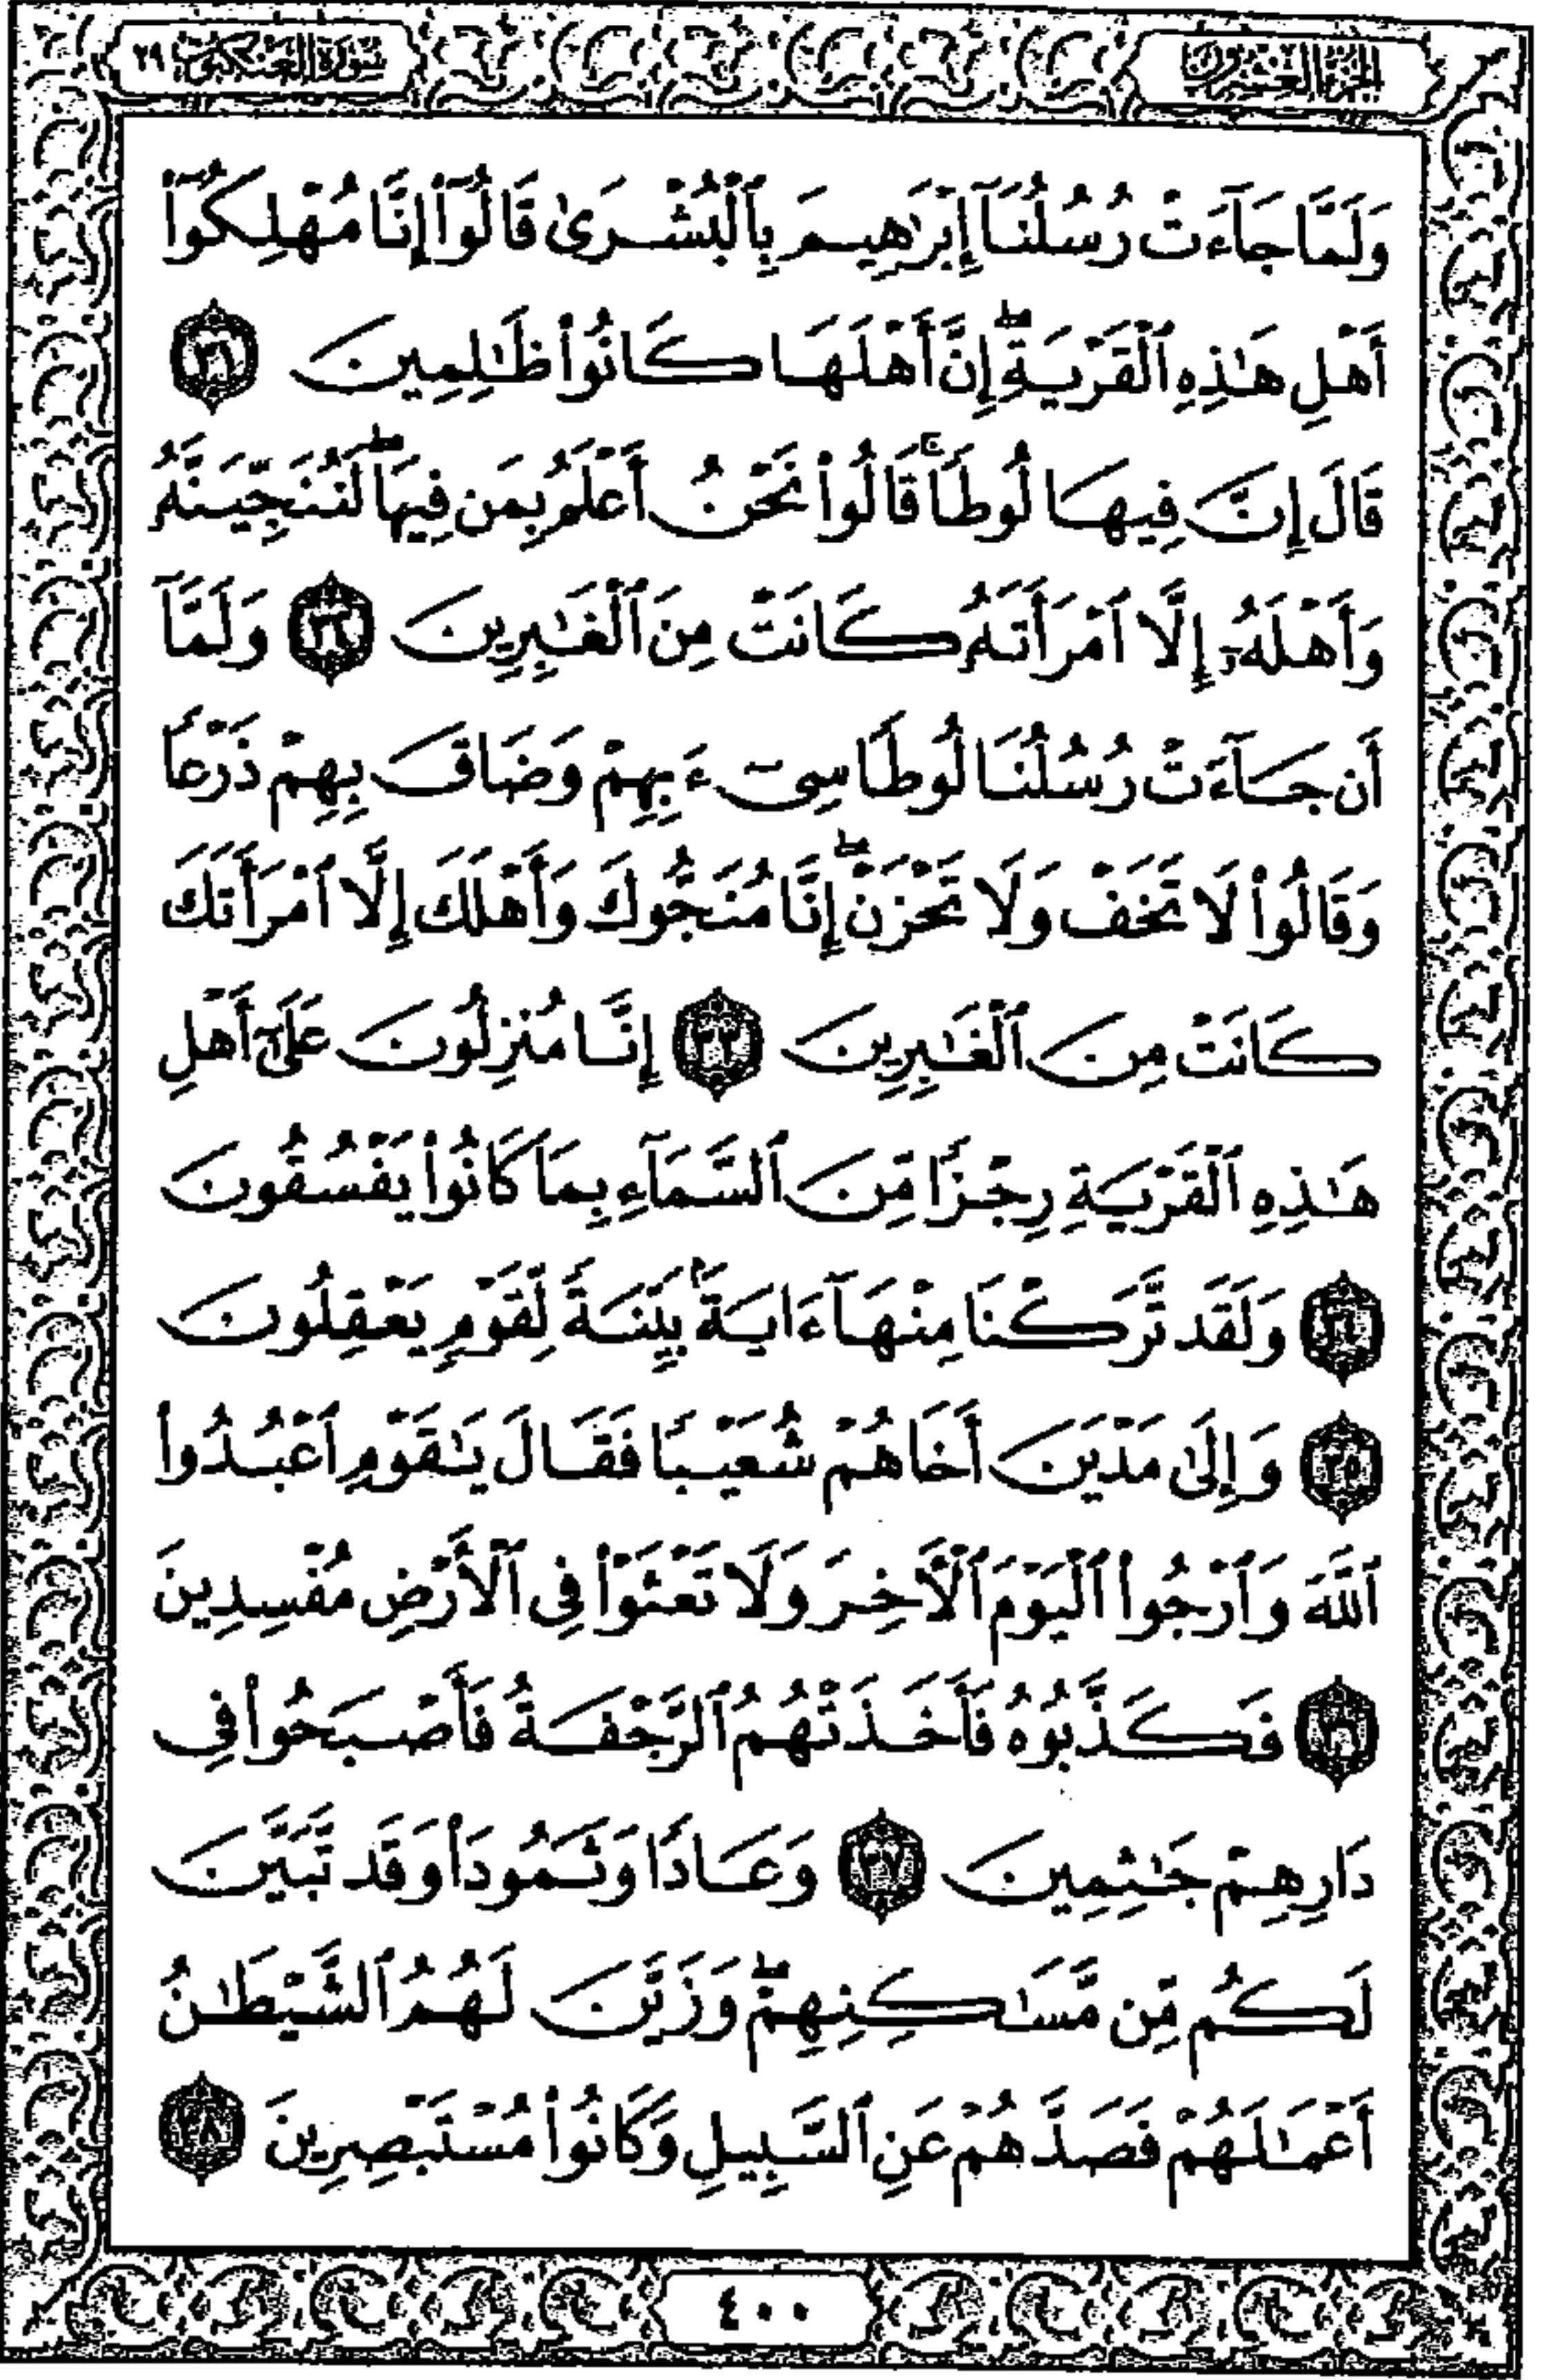 الجزء العشرون
سورة العنكبوت ٢٩
وَلَمَّا جَآءَتْ رُسُلُنَآ إِبْرَٰهِيمَ بِٱلْبُشْرَىٰ قَالُوٓا۟ إِنَّا مُهْلِكُوٓا۟
أَهْلِ هَٰذِهِ ٱلْقَرْيَةِ ۖ إِنَّ أَهْلَهَا كَانُوا۟ ظَٰلِمِينَ ٣١
قَالَ إِنَّ فِيهَا لُوطًا ۚ قَالُوا۟ نَحْنُ أَعْلَمُ بِمَن فِيهَا ۖ لَنُنَجِّيَنَّهُۥ
وَأَهْلَهُۥٓ إِلَّا ٱمْرَأَتَهُۥ كَانَتْ مِنَ ٱلْغَٰبِرِينَ ٣٢ وَلَمَّآ
أَن جَآءَتْ رُسُلُنَا لُوطًا سِىٓءَ بِهِمْ وَضَاقَ بِهِمْ ذَرْعًا
وَقَالُوا۟ لَا تَخَفْ وَلَا تَحْزَنْ ۖ إِنَّا مُنَجُّوكَ وَأَهْلَكَ إِلَّا ٱمْرَأَتَكَ
كَانَتْ مِنَ ٱلْغَٰبِرِينَ ٣٣ إِنَّا مُنزِلُونَ عَلَىٰٓ أَهْلِ
هَٰذِهِ ٱلْقَرْيَةِ رِجْزًا مِّنَ ٱلسَّمَآءِ بِمَا كَانُوا۟ يَفْسُقُونَ
٣٤ وَلَقَد تَّرَكْنَا مِنْهَآ ءَايَةًۢ بَيِّنَةً لِّقَوْمٍ يَعْقِلُونَ
٣٥ وَإِلَىٰ مَدْيَنَ أَخَاهُمْ شُعَيْبًا فَقَالَ يَٰقَوْمِ ٱعْبُدُوا۟
ٱللَّهَ وَٱرْجُوا۟ ٱلْيَوْمَ ٱلْأَخِرَ وَلَا تَعْثَوْا۟ فِى ٱلْأَرْضِ مُفْسِدِينَ
٣٦ فَكَذَّبُوهُ فَأَخَذَتْهُمُ ٱلرَّجْفَةُ فَأَصْبَحُوا۟ فِى
دَارِهِمْ جَٰثِمِينَ ٣٧ وَعَادًا وَثَمُودَا۟ وَقَد تَّبَيَّنَ
لَكُم مِّن مَّسَٰكِنِهِمْ ۖ وَزَيَّنَ لَهُمُ ٱلشَّيْطَٰنُ
أَعْمَٰلَهُمْ فَصَدَّهُمْ عَنِ ٱلسَّبِيلِ وَكَانُوا۟ مُسْتَبْصِرِينَ ٣٨
٤٠٠